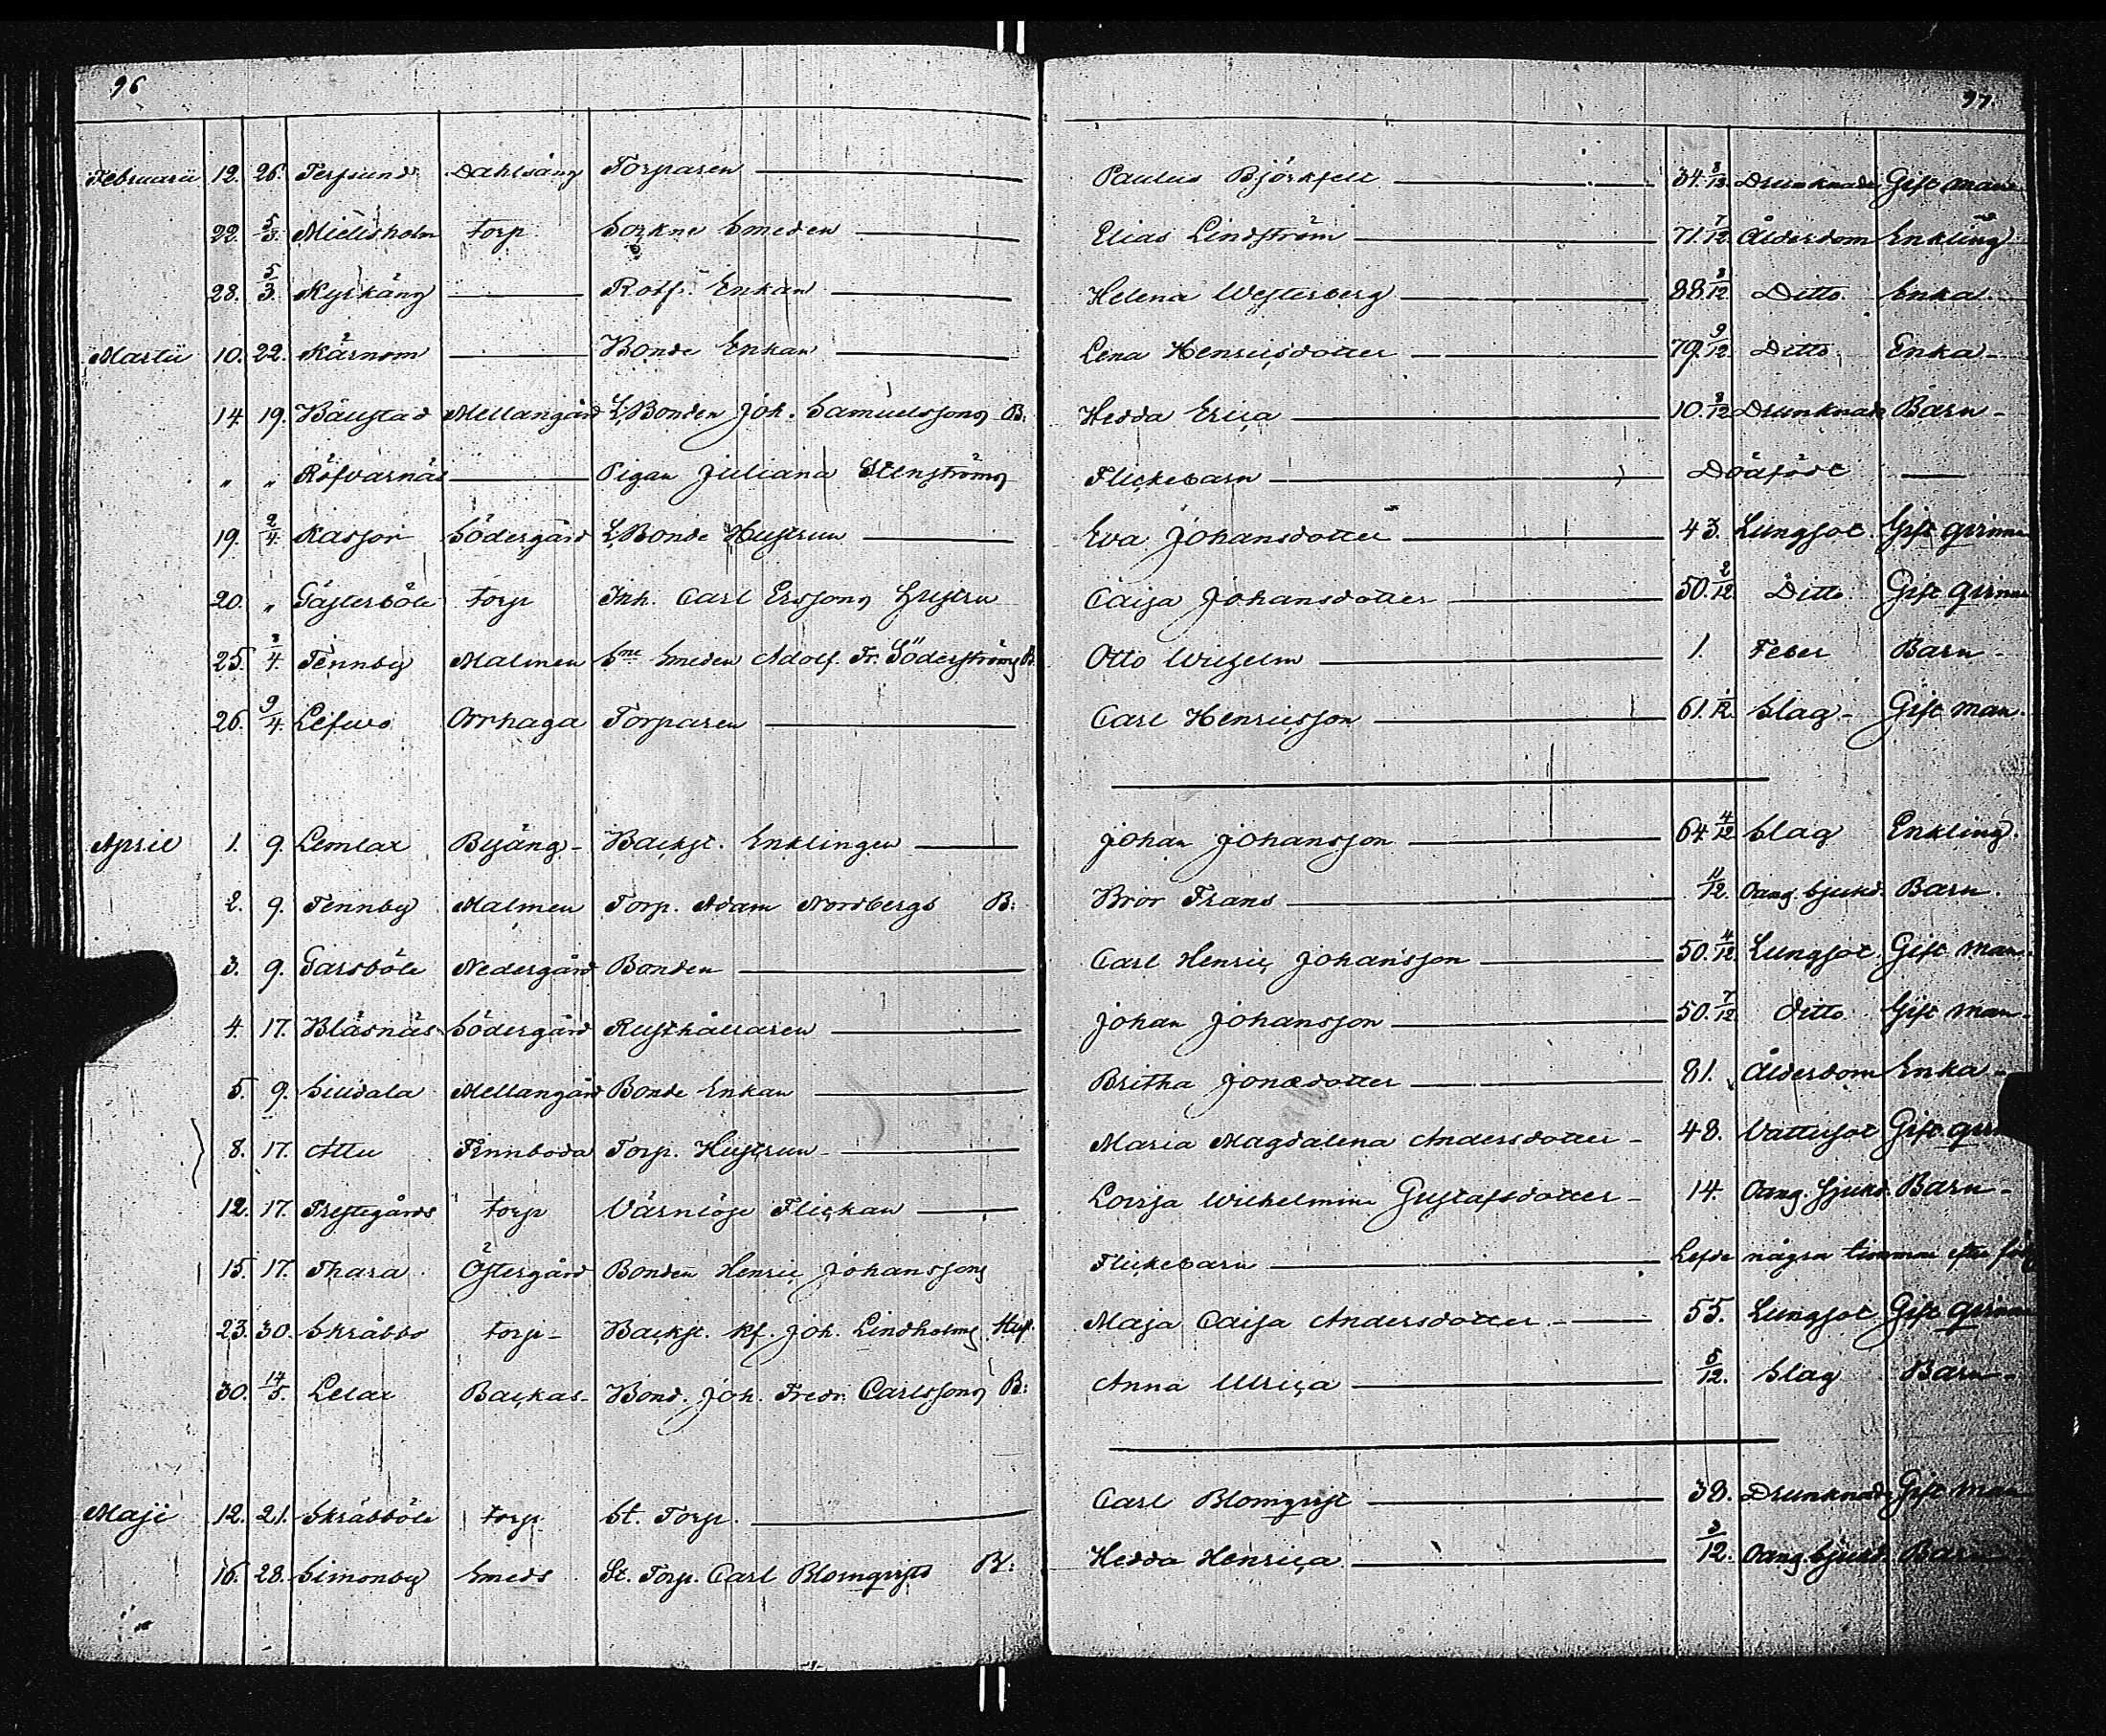 96
97
Februarii 12. 26. Terfsund Dahlsäng Torparen Paulus Björkfelt 34. 3/12. Drunknade Gift man
22. 5/3. Mielisholm torp Sockne Smeden Elias Lindström 71. 7/12. Ålderdom Enkling
28. 5/3. Kyrkäng Rotf. Enkan Helena Westerberg 88. 3/12 Ditto Enka
Martii 10. 22. Kärnom Bonde Enkan Lena Henricsdotter 79. 9/12 Ditto. Enka
14. 19. Bäustad Mellangård L. Bonden Joh. Samuelssons B. Hedda Erica 10. 3/12 Drunknade Barn
" " Röfvarnäs Pigan Juliana Stenströms Flickebarn Dödfödt
19. 2/4. Kasfor Södergård L. Bonde Hustrun Eva Johansdotter 43. Lungsot. Gift qvinna
20. " Gästerböle torp Inh. Carl Ersons Hustru Caisa Johansdotter 50. 2/12 Ditto Gift qvinna
25. 3/4. Tennby Malmen Sne Smeden Adolf Fr. Söderströms B. Otto Wilhelm 1. Feber Barn
26. 9/4. Lefwo Orrhaga Torparen Carl Henricsson 61. 1/12. Slag Gift man.
April 1. 9. Lemlax Byäng Backst. Enklingen Johan Johansson 64 4/12 Slag Enkling.
2. 9. Tennby Malmen Torp. Adam Nordbergs B: Bror Frans 11/12. Oang. sjukd. Barn.
3. 9. Garsböle Nedergård Bonden Carl Henric Johansson 50. 4/12 Lungsot Gift man
4. 17. Bläsnäs Södergård Rusthållaren Johan Johansson 50. 7/12 Ditto Gift man
5. 9. Sildala Mellangård Bonde Enkan Britha Jonædotter 81. Ålderdom Enka
8. 17. Attu Finnboda Torp. Hustrun Maria Magdalena Andersdotter 48. Vattusot Gift qvin
12. 17. Prestgårds torp Värnlöse Flickan Lovisa Wilhelmina Gustafsdotter 14. Oang. sjukd. Barn
15. 17. Thara Östergård Bonden Henric Johanssons Flickebarn Lefde några timmar efter föd
23. 30. Skräbbo torp Backst. Kf. Joh. Lindholms Hust. Maja Caisa Andersdotter 55. Lungsot Gift qvinna
30. 14/5. Lelax Backas Bond. Joh. Fredr. Carlssons B: Anna Ulrica 5/12. Slag Barn
Maji 12. 21. Skräbböle torp St. Torp. Carl Blomqvist 38. Drunknade Gift man
16. 28. Simonby Smeds St. Torp. Carl Blomqvists B. Hedda Henrica 3/12. Oang. sjukd. Barn